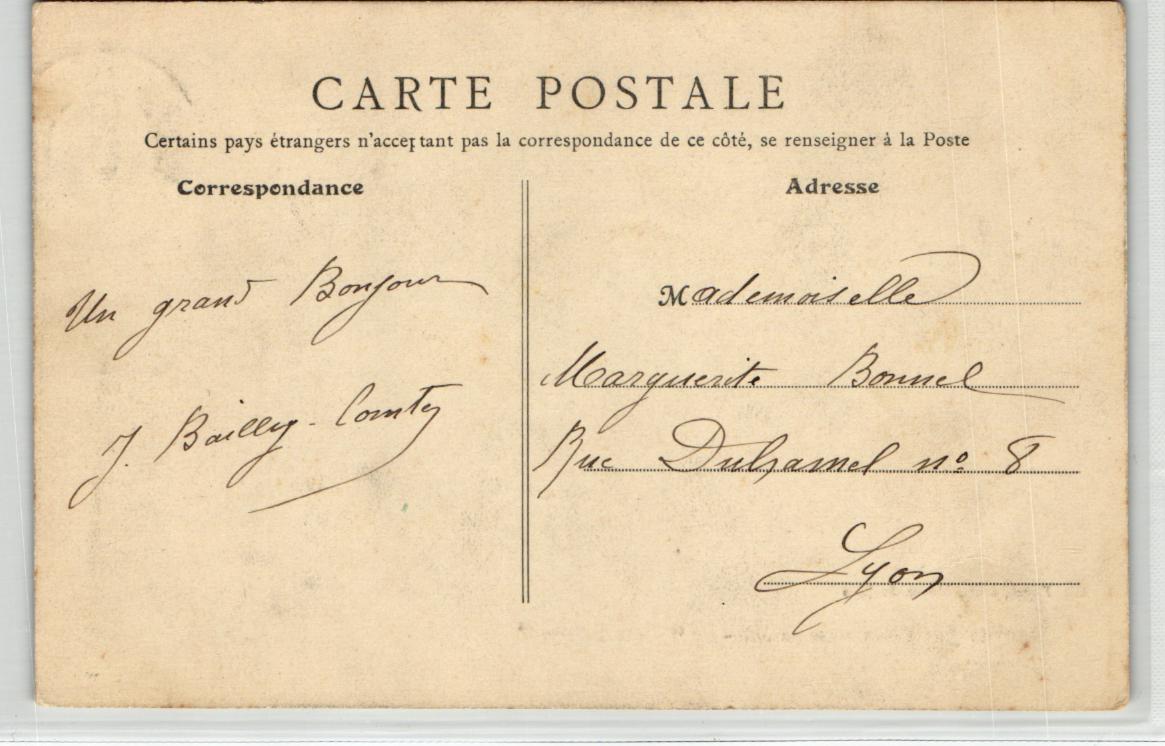 CARTE POSTALE
Certains pays étrangers n'acceptant pas la correspondance de ce côté, se renseigner à la Poste
Correspondance
Un grand Bonjour
J. Bailly-Comte
Adresse
Mademoiselle
Marguerite Bonnel
Rue Duhamel n° 8
Lyon